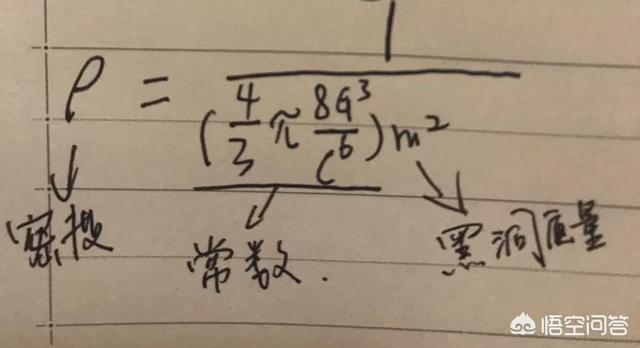 ρ = 1 / (4/3 π 8G³/C⁶) m²
密度 常数. 黑洞质量
悟空问答